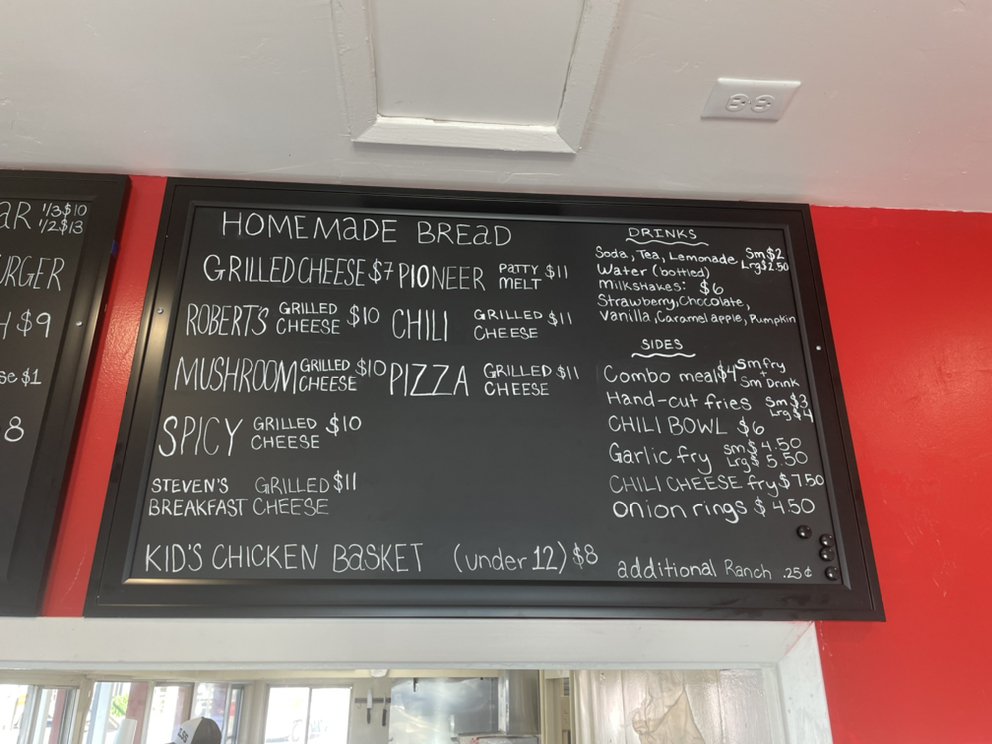 AR 1/3 $10
1/2 $13
URGER
H $9
se $1
8
HOMEMADE BREAD
GRILLED CHEESE $7
ROBERTS GRILLED CHEESE $10
MUSHROOM GRILLED CHEESE $10
SPICY GRILLED CHEESE $10
STEVEN'S BREAKFAST GRILLED CHEESE $11
PIONEER PATTY MELT $11
CHILI GRILLED CHEESE $11
PIZZA GRILLED CHEESE $11
KID'S CHICKEN BASKET (under 12) $8
DRINKS
Soda, Tea, Lemonade Sm $2
Lrg $2.50
Water (bottled)
Milkshakes: $6
Strawberry, Chocolate,
Vanilla, Caramel apple, Pumpkin
SIDES
Combo meal $4 Sm fry + Sm Drink
Hand-cut fries Sm $3
Lrg $4
CHILI BOWL $6
Garlic fry Sm $4.50
Lrg $5.50
CHILI CHEESE fry $7.50
Onion rings $4.50
additional Ranch .25¢